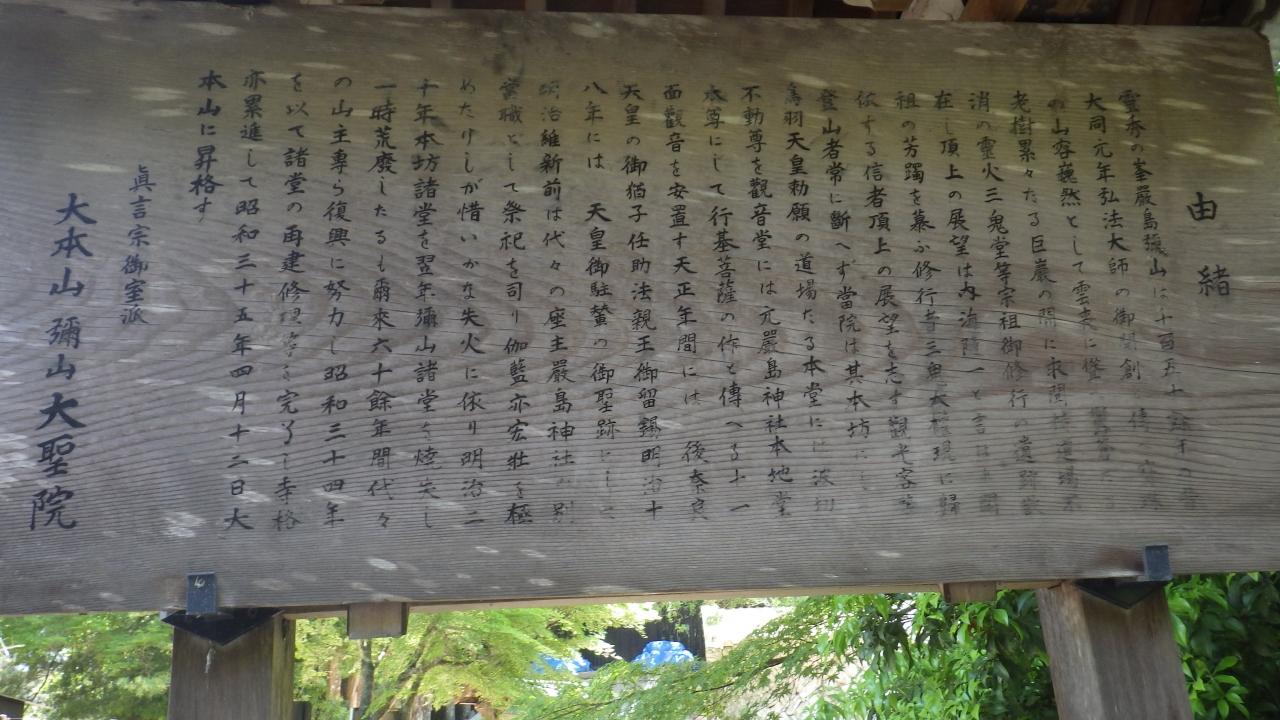 由緒
靈秀の峯嚴島彌山は千百五十餘年の昔
大同元年弘法大師の御開創と傳
の山容巍然として雲表に聳
老樹累々たる巨巖の間に求聞持道場不
消の靈火三鬼堂等宗祖御修行の遺跡嚴
在し頂上の展望は内海隨一と言はれ開
祖の芳躅を慕ふ修行者三鬼大權現に歸
依する信者頂上の展望を志す觀光客等
登山者常に斷へず當院は其本坊にし
鳥羽天皇勅願の道場たる本堂には波切
不動尊を觀音堂には元嚴島神社本地堂
本尊にして行基菩薩の作と傳へる十一
面觀音を安置す天正年間には 後奈良
天皇の御猶子任助法親王御留錫明治十
八年には 天皇御駐輦の御聖跡にして
明治維新前は代々の座主嚴島神社の別
當職として祭祀を司り伽藍亦宏壯を極
めたりしが惜いかな失火に依り明治二
十年本坊諸堂を翌年彌山諸堂を燒失し
一時荒廢したるも爾來六十餘年間代々
の山主専ら復興に努力し昭和三十四年
を以て諸堂の再建修理等を完了し寺格
亦累進して昭和三十五年四月十二日大
本山に昇格す
眞言宗御室派
大本山 彌山大聖院